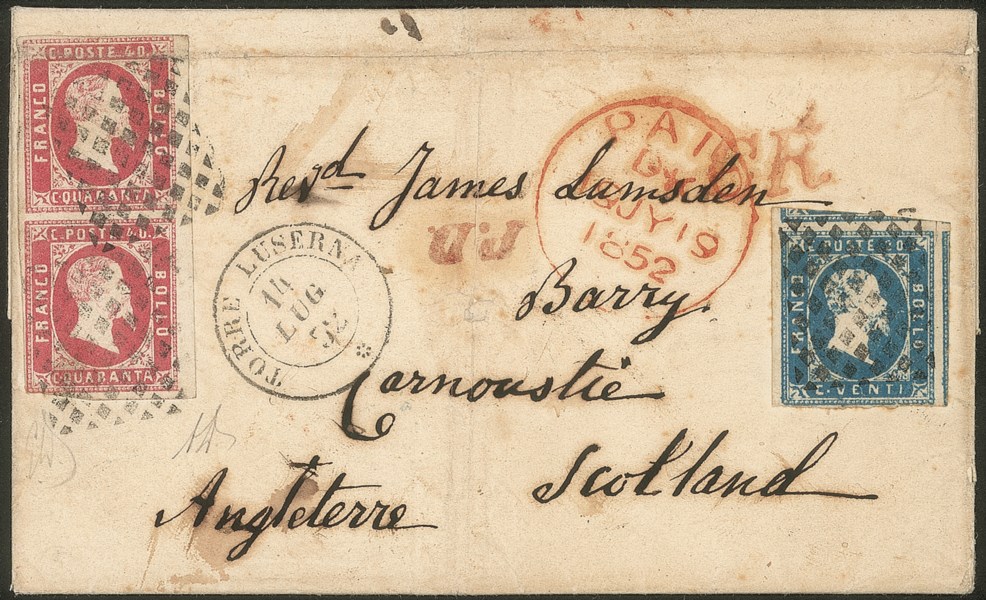 C. POSTE 40.
FRANCO
BOLLO
C. QUARANTA
C. POSTE 40.
FRANCO
BOLLO
C. QUARANTA
Revd James Lumsden
PAID
JY 19
1852
P.D.
TORRE LUSERNA
LUG
52
C. POSTE 20.
FRANCO
BOLLO
C. VENTI
Barry
Carnoustie
Scotland
Angleterre